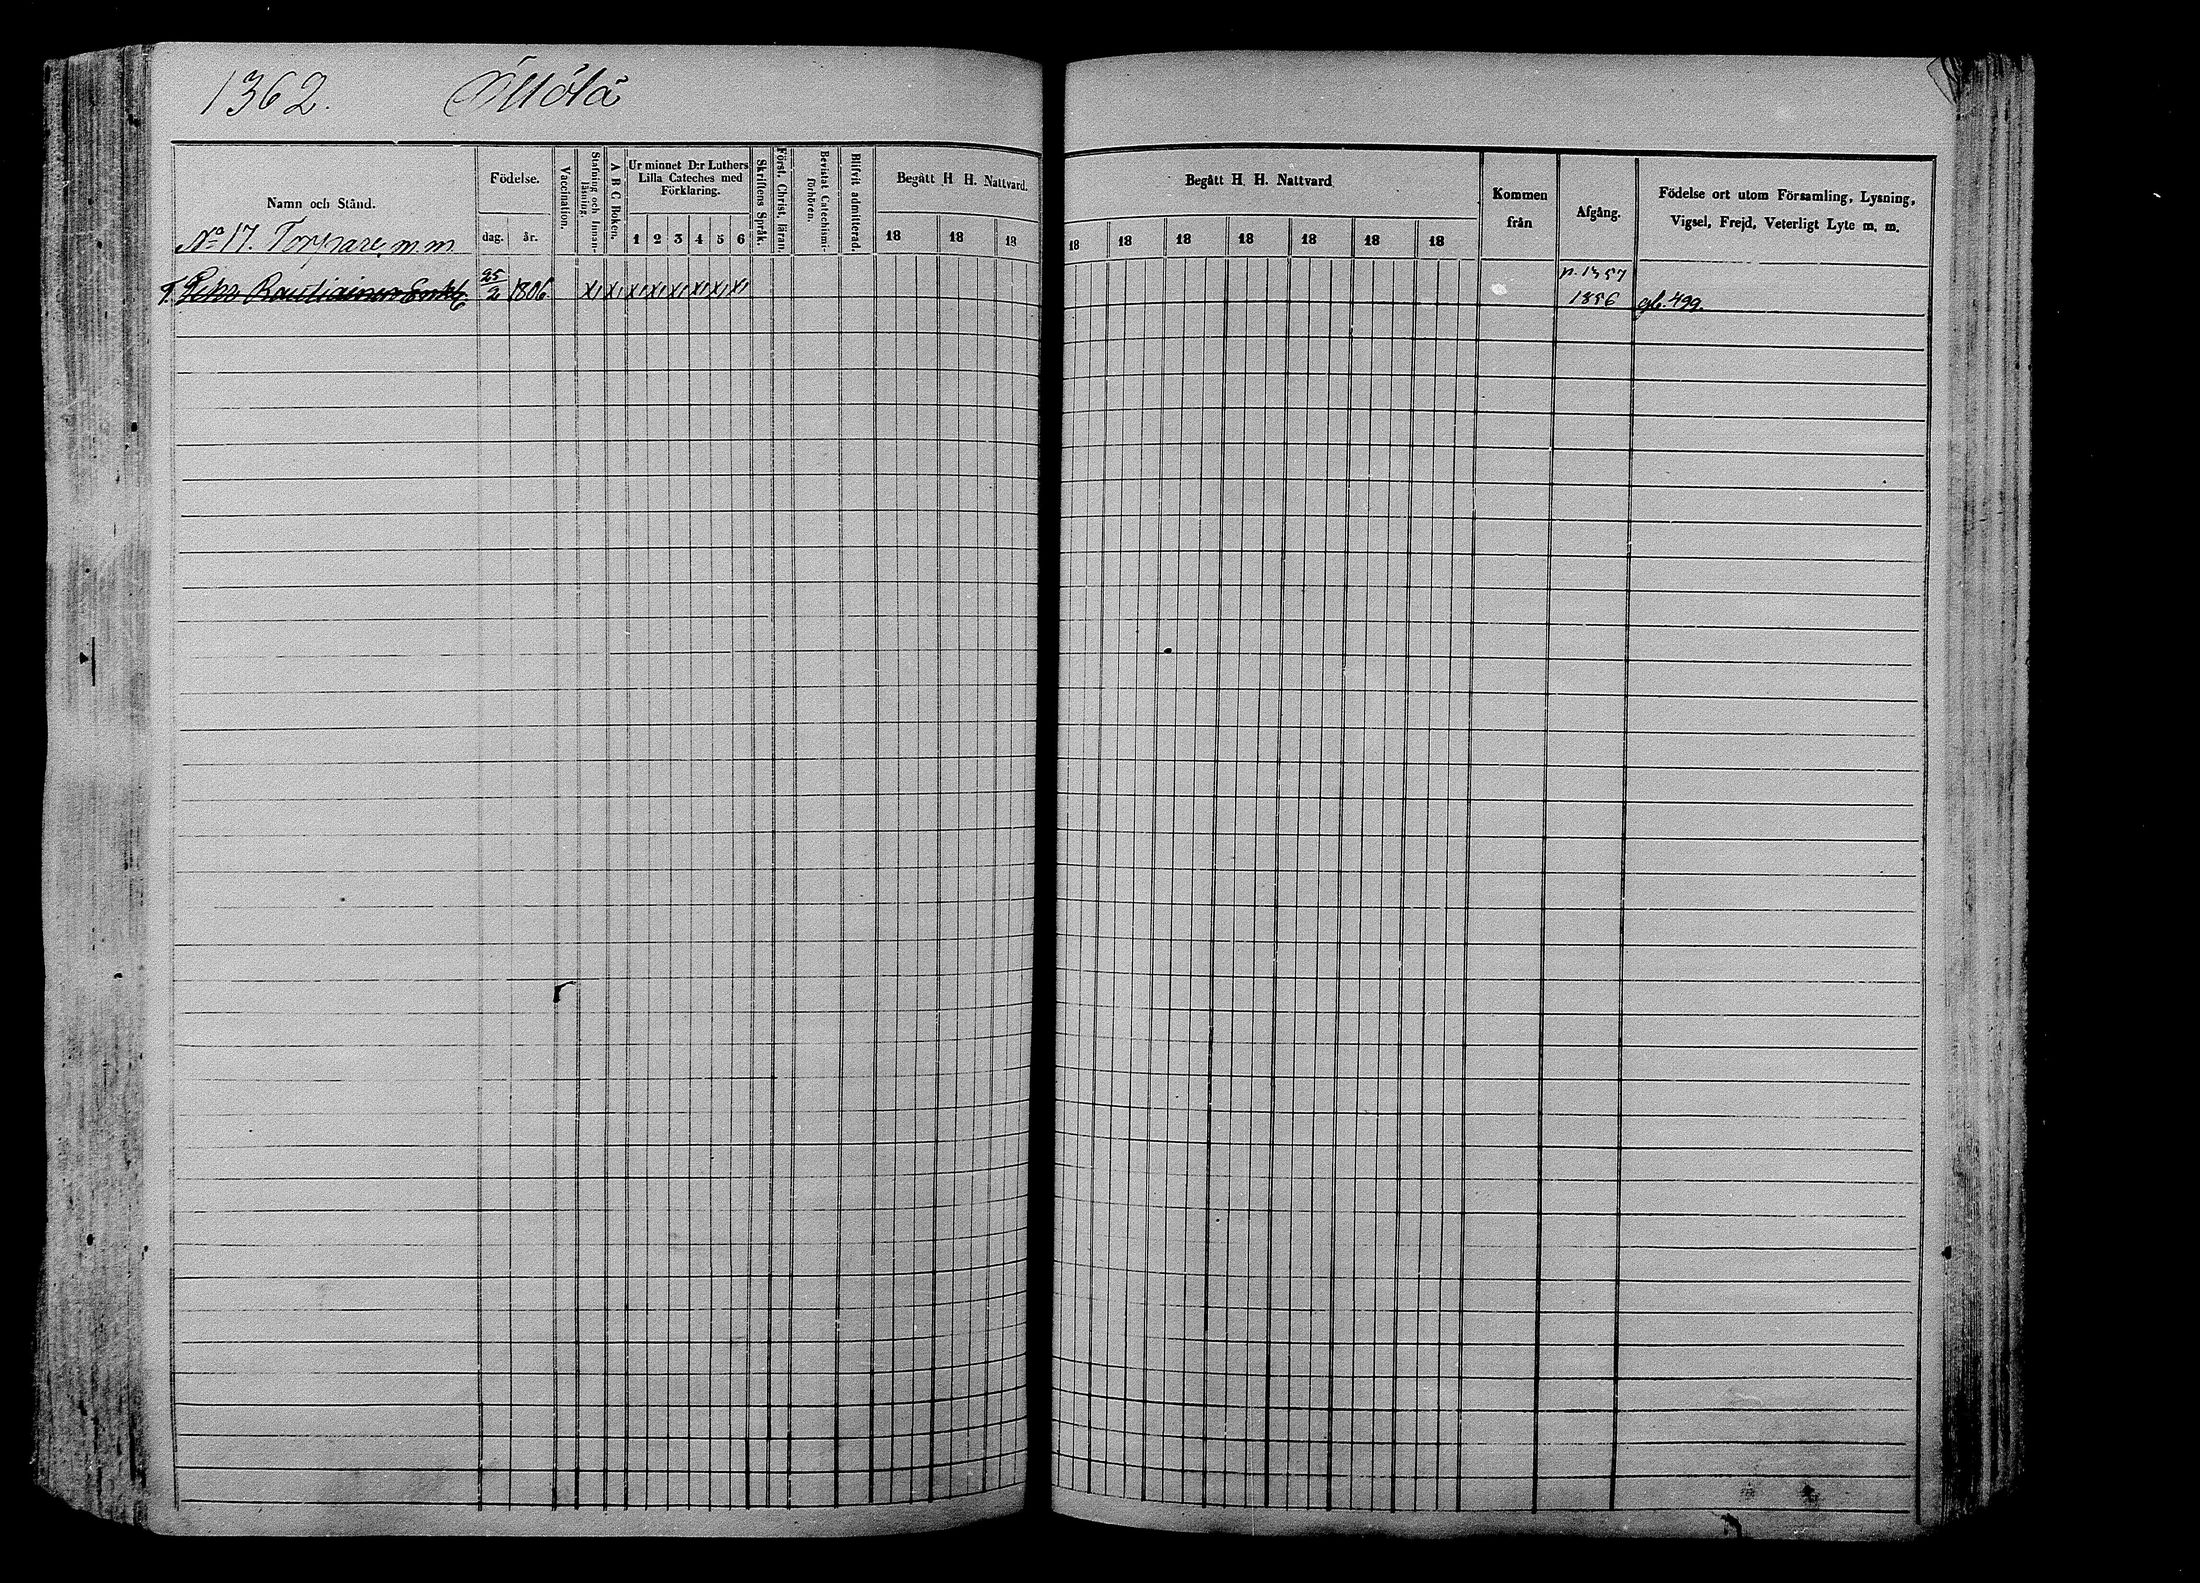 1362. Öllölä
Namn och Stånd.
Födelse.
dag. år.
Vaccination.
Stafning och Innanläsning.
A B C Boken.
Ur minnet D:r Luthers Lilla Cateches med Förklaring.
1 2 3 4 5 6
Skriftens Språk.
Först. Christ. läran.
Bevistat Catechismiförhören.
Blifvit admitterad.
Begått H H. Nattvard.
18 18 18
Begått H. H. Nattvard
18 18 18 18 18 18 18
Kommen från
Afgång.
Födelse ort utom Församling, Lysning,
Vigsel, Frejd, Veterligt Lyte m. m.
No 17. Torpare, m. m.
T. Rautiainen 25/2 1806. x x x x x x x x p. 1357 1856 gb. 499.